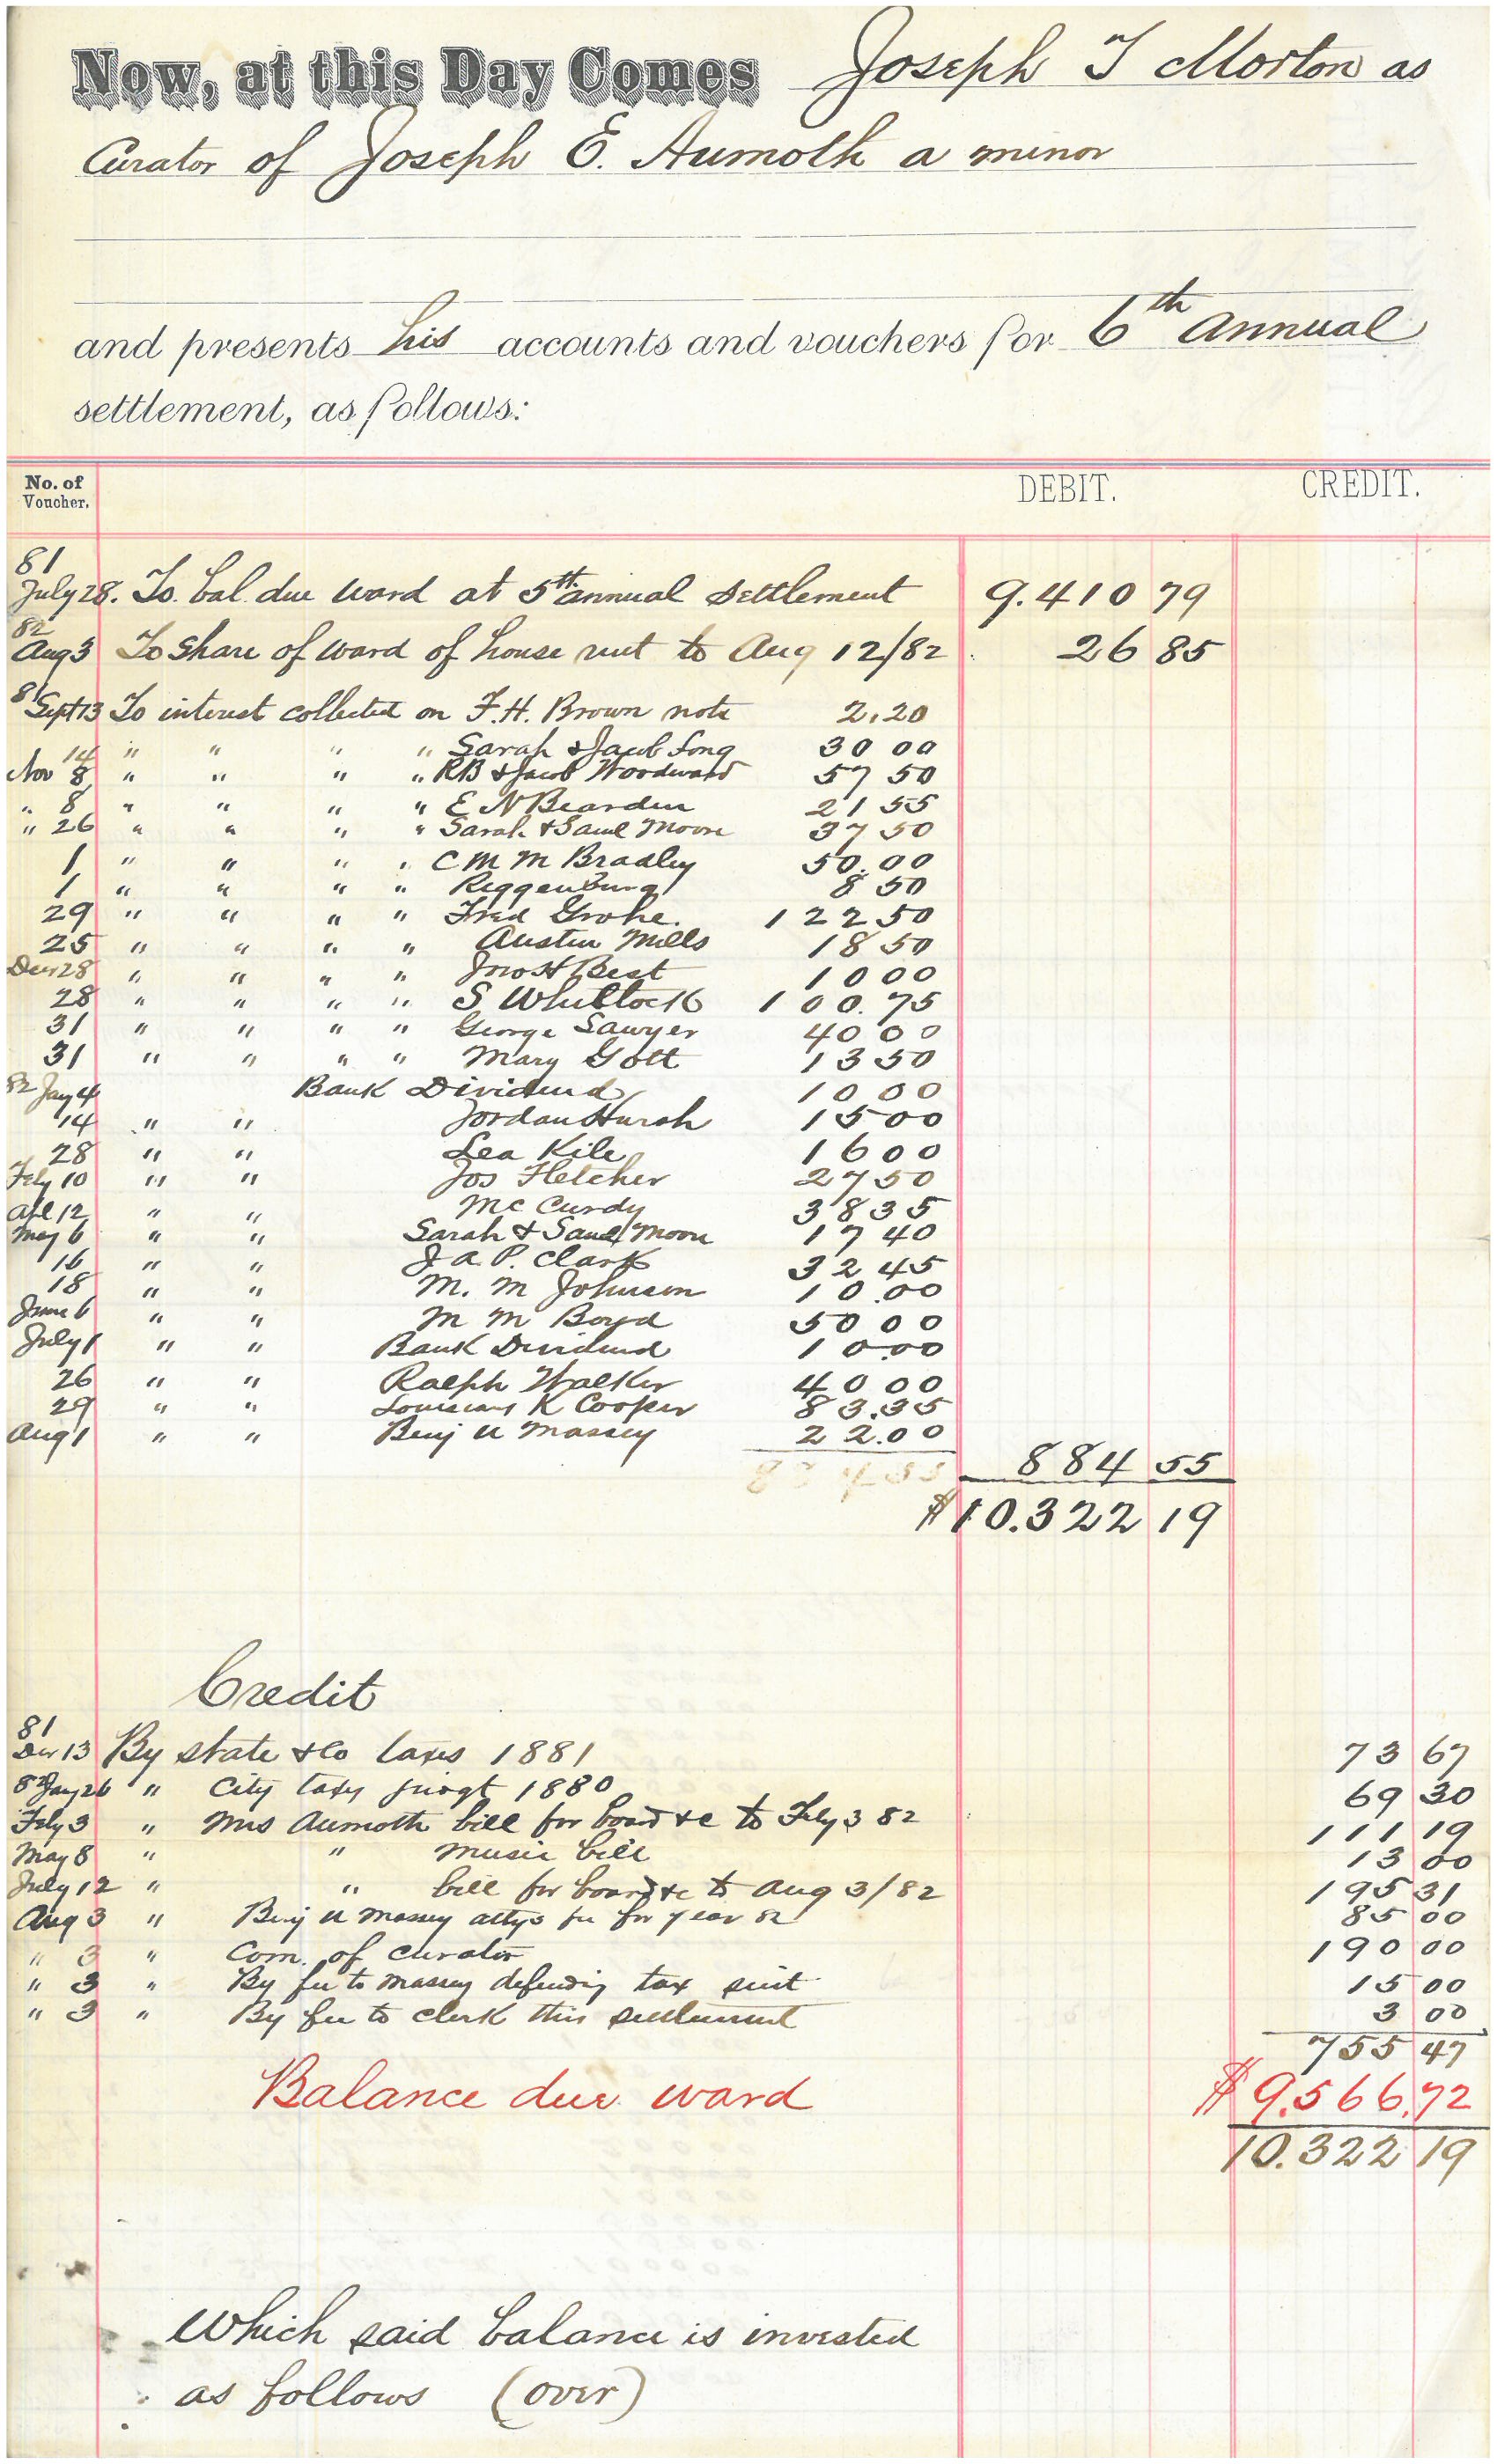 Now, at this Day Comes Joseph T Morton as
Curator of Joseph E. Aumoth a minor
and presents his accounts and vouchers for 6th annual
settlement, as follows:
No. of Voucher. DEBIT. CREDIT.
81
July 28. To bal. due ward at 5th annual settlement 9.410 79
82
Aug 3 To share of ward of house rent to Aug 12/82 26 85
81 Sept 13 To interest collected on F. H. Brown note 2.20
14 " " " " Sarah & Jacob Long 30 00
Nov 8 " " " " RB & Jacob Woodward 57 50
" 8 " " " " E N Bearden 21 55
" 26 " " " " Sarah & Saml Moore 37 50
1 " " " " C M M Bradley 50.00
1 " " " " Reggenburg 8 50
29 " " " " Fred Grohe. 122 50
25 " " " " Austin Mills 18 50
Decr 28 " " " " Jno H Best 10 00
28 " " " " S Whitlock 100.75
31 " " " " George Sawyer 40 00
31 " " " " Mary Gott 13 50
82 Jany 4 Bank Dividend 10 00
14 " " Jordan Hursh 15 00
28 " " Lea Kile 16 00
Feby 10 " " Jos Fletcher 27 50
Apl 12 " " Mc Curdy 38 35
May 6 " " Sarah & Saml Moore 17 40
16 " " J A P. Clark 32 45
18 " " M. M Johnson 10.00
June 6 " " M M Boyd 50 00
July 1 " " Bank Dividend 10.00
26 " " Ralph Walker 40 00
29 " " Louisiana K Cooper 83.35
Aug 1 " " Benj U Massey 22.00
884 55 884 55
$10.322 19
Credit
81
Decr 13 By state & Co taxes 1881 73 67
82 Jany 26 " City taxes 1880 69 30
Feby 3 " Mrs Aumoth bill for board &c to Feby 3 82 111 19
May 8 " " music bill 13 00
July 12 " " bill for board &c to Aug 3/82 195 31
Aug 3 " Benj U Massey attys fee for year 82 85 00
" 3 " Com. of curator 190 00
" 3 " By fee to Massey defending tax suit 15 00
" 3 " By fee to clerk this settlement 3 00
755 47
Balance due ward $9.566.72
10.322 19
Which said balance is invested
as follows (over)